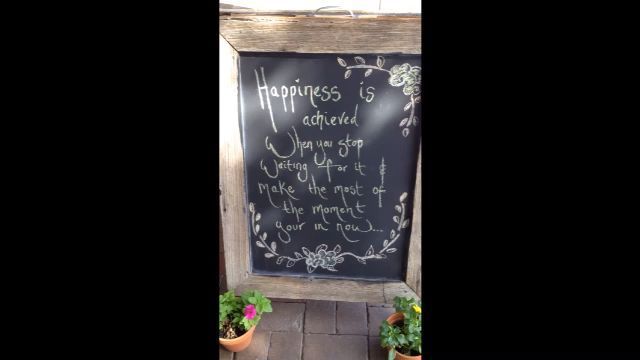 Happiness is
achieved
When you stop
Waiting for it &
make the most of
the moment
your in now...